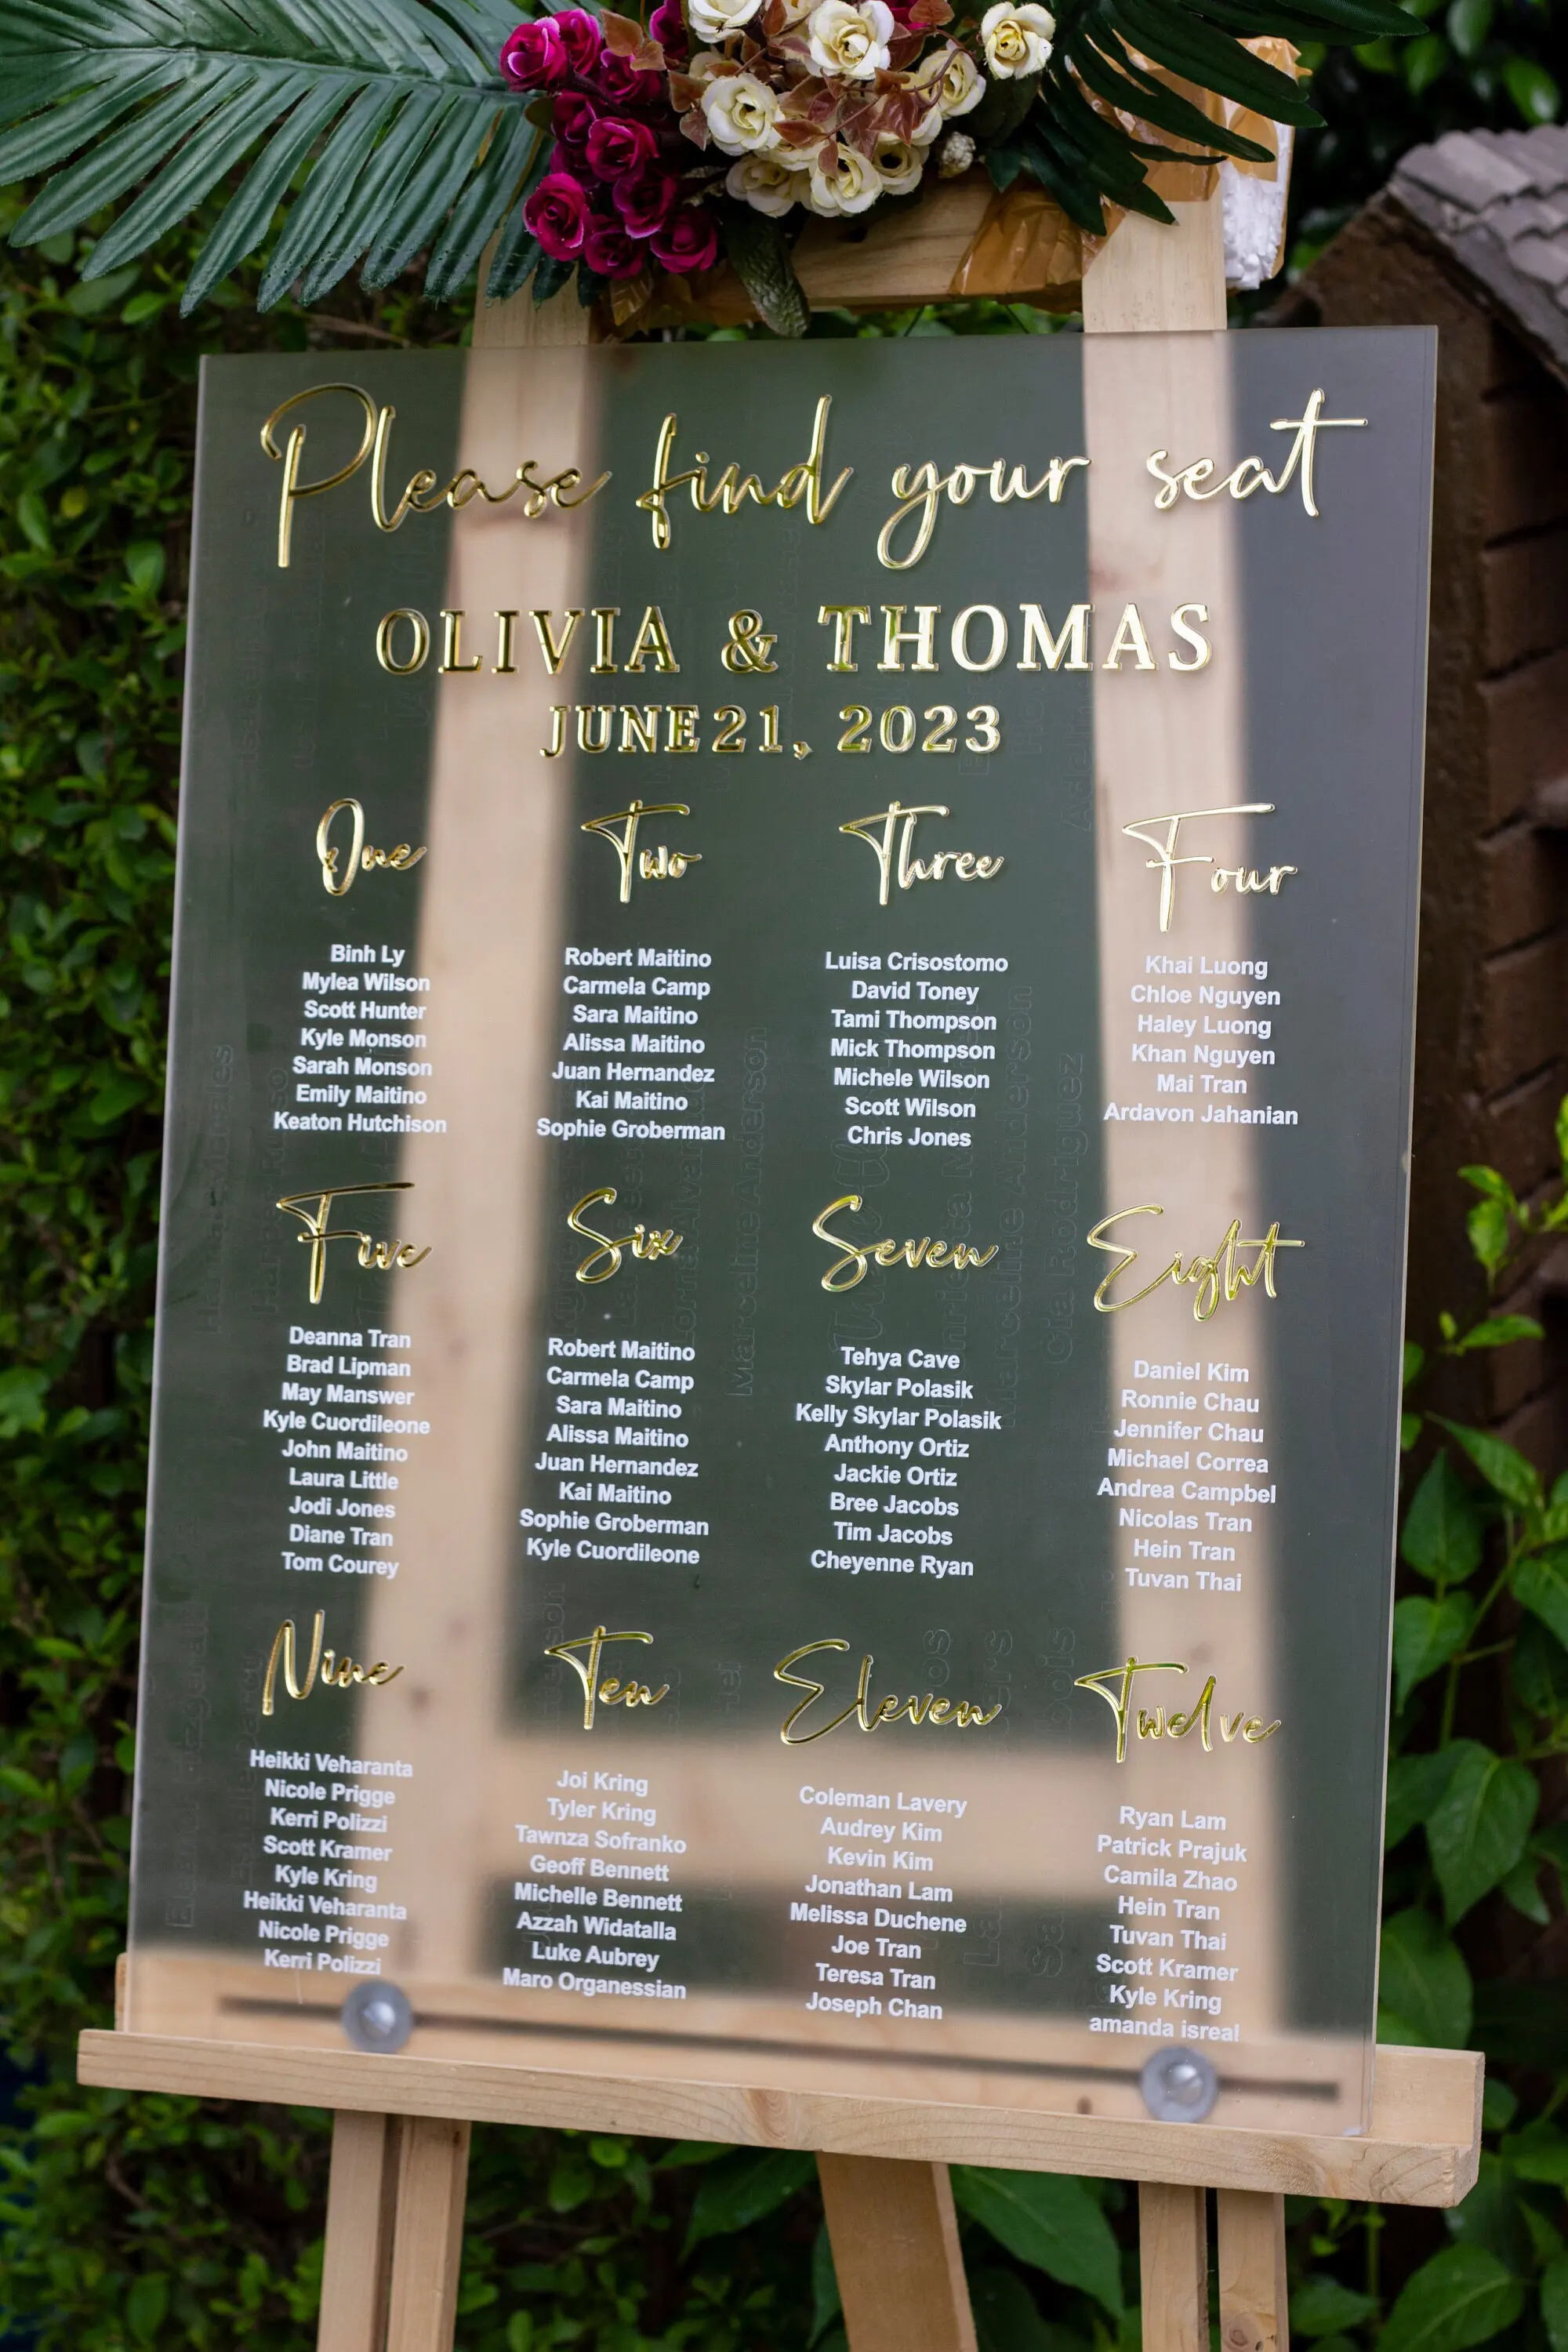 Please find your seat
OLIVIA & THOMAS
JUNE 21, 2023
One
Binh Ly
Mylea Wilson
Scott Hunter
Kyle Monson
Sarah Monson
Emily Maitino
Keaton Hutchison
Two
Robert Maitino
Carmela Camp
Sara Maitino
Alissa Maitino
Juan Hernandez
Kai Maitino
Sophie Groberman
Three
Luisa Crisostomo
David Toney
Tami Thompson
Mick Thompson
Michele Wilson
Scott Wilson
Chris Jones
Four
Khai Luong
Chloe Nguyen
Haley Luong
Khan Nguyen
Mai Tran
Ardavon Jahanian
Five
Deanna Tran
Brad Lipman
May Manswer
Kyle Cuordileone
John Maitino
Laura Little
Jodi Jones
Diane Tran
Tom Courey
Six
Robert Maitino
Carmela Camp
Sara Maitino
Alissa Maitino
Juan Hernandez
Kai Maitino
Sophie Groberman
Kyle Cuordileone
Seven
Tehya Cave
Skylar Polasik
Kelly Skylar Polasik
Anthony Ortiz
Jackie Ortiz
Bree Jacobs
Tim Jacobs
Cheyenne Ryan
Eight
Daniel Kim
Ronnie Chau
Jennifer Chau
Michael Correa
Andrea Campbel
Nicolas Tran
Hein Tran
Tuvan Thai
Nine
Heikki Veharanta
Nicole Prigge
Kerri Polizzi
Scott Kramer
Kyle Kring
Heikki Veharanta
Nicole Prigge
Kerri Polizzi
Ten
Joi Kring
Tyler Kring
Tawnza Sofranko
Geoff Bennett
Michelle Bennett
Azzah Widatalla
Luke Aubrey
Maro Organessian
Eleven
Coleman Lavery
Audrey Kim
Kevin Kim
Jonathan Lam
Melissa Duchene
Joe Tran
Teresa Tran
Joseph Chan
Twelve
Ryan Lam
Patrick Prajuk
Camila Zhao
Hein Tran
Tuvan Thai
Scott Kramer
Kyle Kring
amanda isreal
Marceline Anderson
Marceline Anderson
Cia Rodriguez